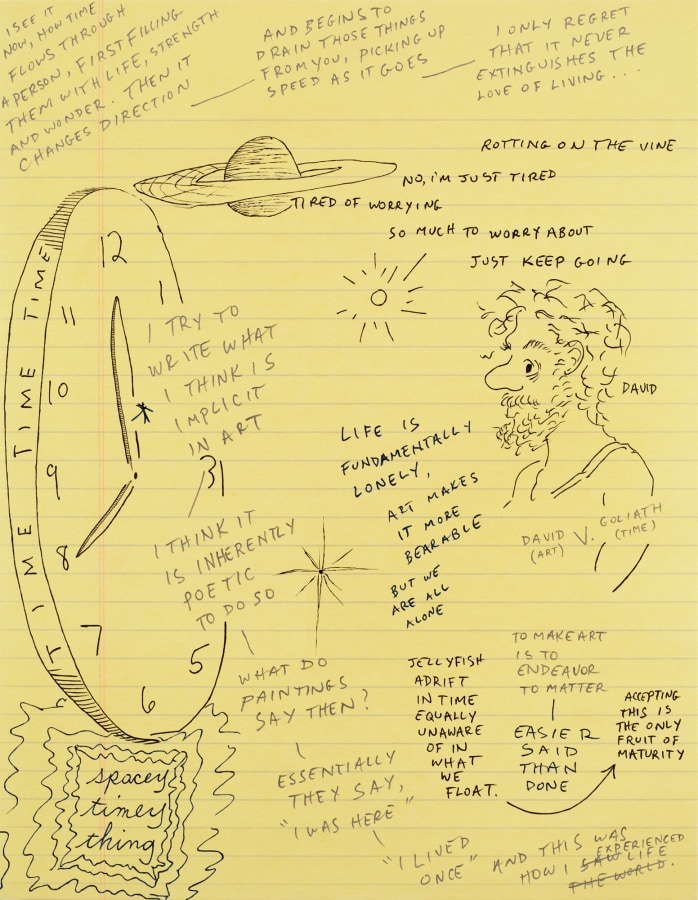 I SEE IT
NOW, HOW TIME
FLOWS THROUGH
A PERSON, FIRST FILLING
THEM WITH LIFE, STRENGTH
AND WONDER. THEN IT
CHANGES DIRECTION
AND BEGINS TO
DRAIN THOSE THINGS
FROM YOU, PICKING UP
SPEED AS IT GOES
I ONLY REGRET
THAT IT NEVER
EXTINGUISHES THE
LOVE OF LIVING...
ROTTING ON THE VINE
NO, I'M JUST TIRED
TIRED OF WORRYING
SO MUCH TO WORRY ABOUT
JUST KEEP GOING
TIME TIME TIME TIME
12
1
11
10
9
31
8
7
6
5
I TRY TO
WRITE WHAT
I THINK IS
IMPLICIT
IN ART
I THINK IT
IS INHERENTLY
POETIC
TO DO SO
WHAT DO
PAINTINGS
SAY THEN?
ESSENTIALLY
THEY SAY,
"I WAS HERE"
"I LIVED
ONCE"
AND THIS WAS
HOW I SAW EXPERIENCED LIFE
THE WORLD.
DAVID
LIFE IS
FUNDAMENTALLY
LONELY,
ART MAKES
IT MORE
BEARABLE
BUT WE
ARE ALL
ALONE
DAVID V. GOLIATH
(ART) (TIME)
JELLYFISH
ADRIFT
IN TIME
EQUALLY
UNAWARE
OF IN
WHAT
WE
FLOAT.
TO MAKE ART
IS TO
ENDEAVOR
TO MATTER
EASIER
SAID
THAN
DONE
ACCEPTING
THIS IS
THE ONLY
FRUIT OF
MATURITY
spacey
timey
thing